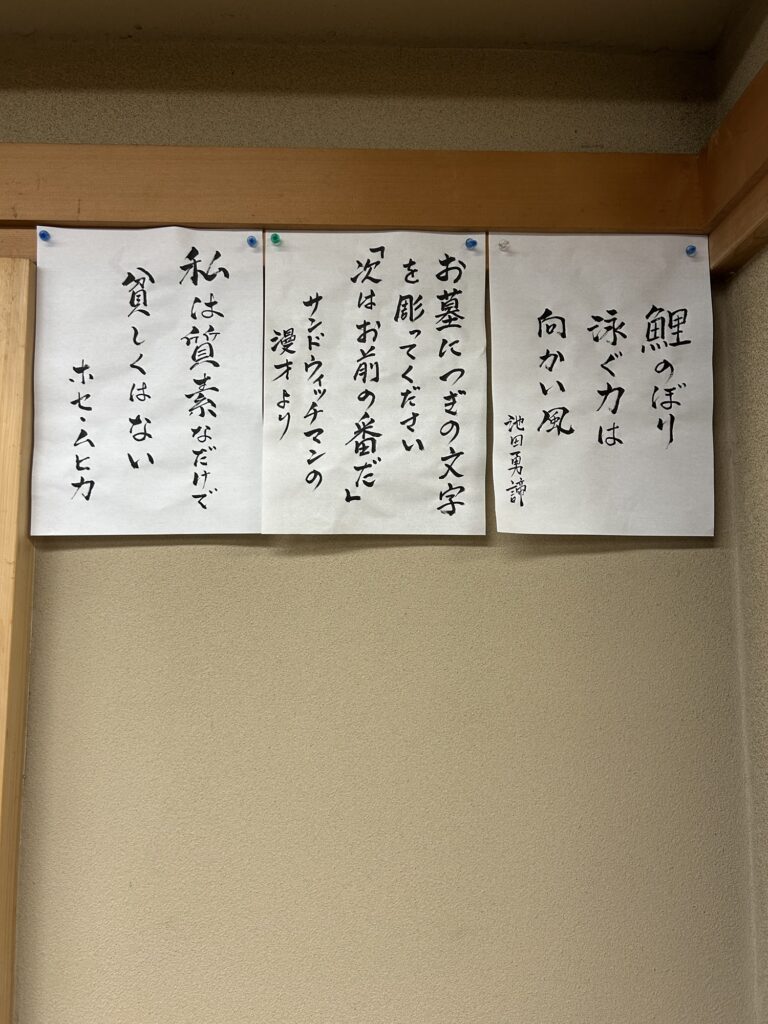 鯉のぼり
泳ぐ力は
向かい風
池田勇諦
お墓につぎの文字
を彫ってください
「次はお前の番だ」
サンドウィッチマンの
漫才より
私は質素なだけで
貧しくはない
ホセ・ムヒカ